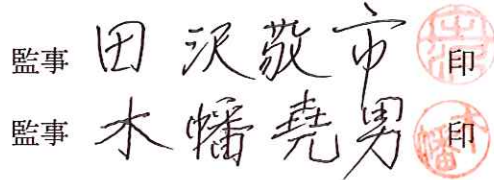 監事 田沢敬市 印
監事 木幡堯男 印